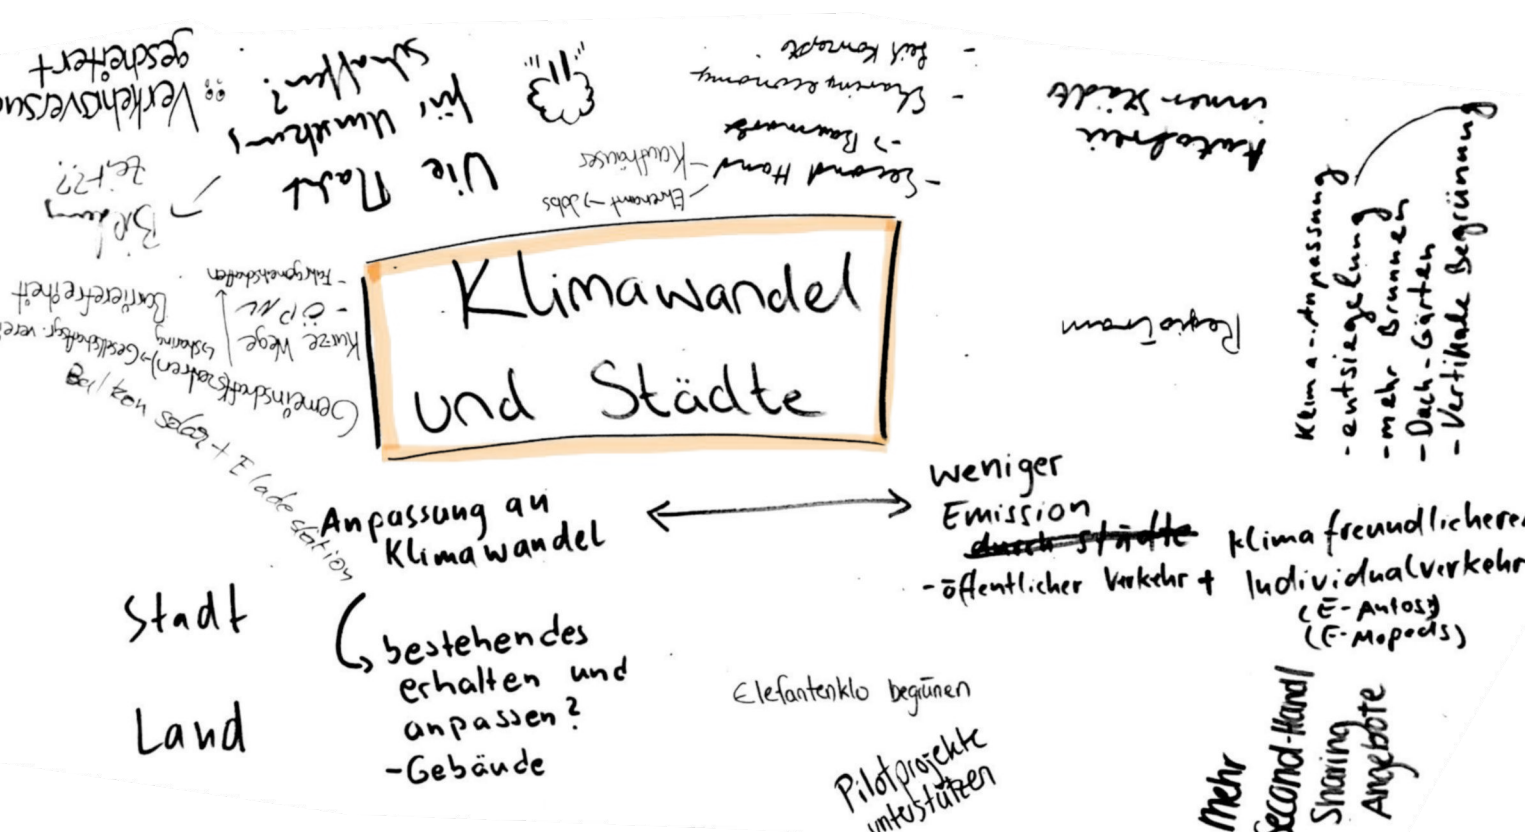 Klimawandel
und Städte
Anpassung an
Klimawandel
bestehendes
erhalten und
anpassen?
-Gebäude
Stadt
Land
weniger
Emission
durch städte
-öffentlicher Verkehr + klimafreundlicheren
Individualverkehr
(E-Autos)
(E-Mopeds)
Elefantenklo begrünen
Pilotprojekte
unterstützen
Mehr
Second-Hand/
Sharing
Angebote
Klima-Anpassung
-entsiegelung
-mehr Brunnen
-Dach-Gärten
-Vertikale Begrünung
Autofreie
innen städte
RegioTram
-Second Hand
-> Baumarkt
-Kaufhäuser
Ehrenamt -> Jobs
- Sharing economy
- Leih Konzepte
Wie Macht
für Umsetzung
schaffen?
Bildung
Zeit??
Verkehrsversuch
gescheitert
Kurze Wege
- ÖPNV
- Fahrgemeinschaften
Barrierefreiheit
Gemeinschafts
sharing
Balkon solar + E ladestation